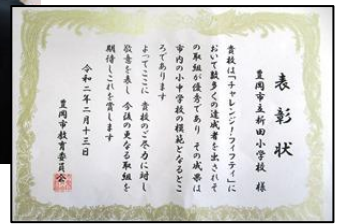 表彰状
豊岡市立新田小学校 様
貴校は「チャレンジ！フィフティ」に
おいて数多くの達成者を出されそ
の取組が優秀であり その成果は
市内の小中学校の模範となるとこ
ろであります
よってここに 貴校のご尽力に対し
敬意を表し 今後の更なる取組を
期待しこれを賞します
令和二年二月十三日
豊岡市教育委員会